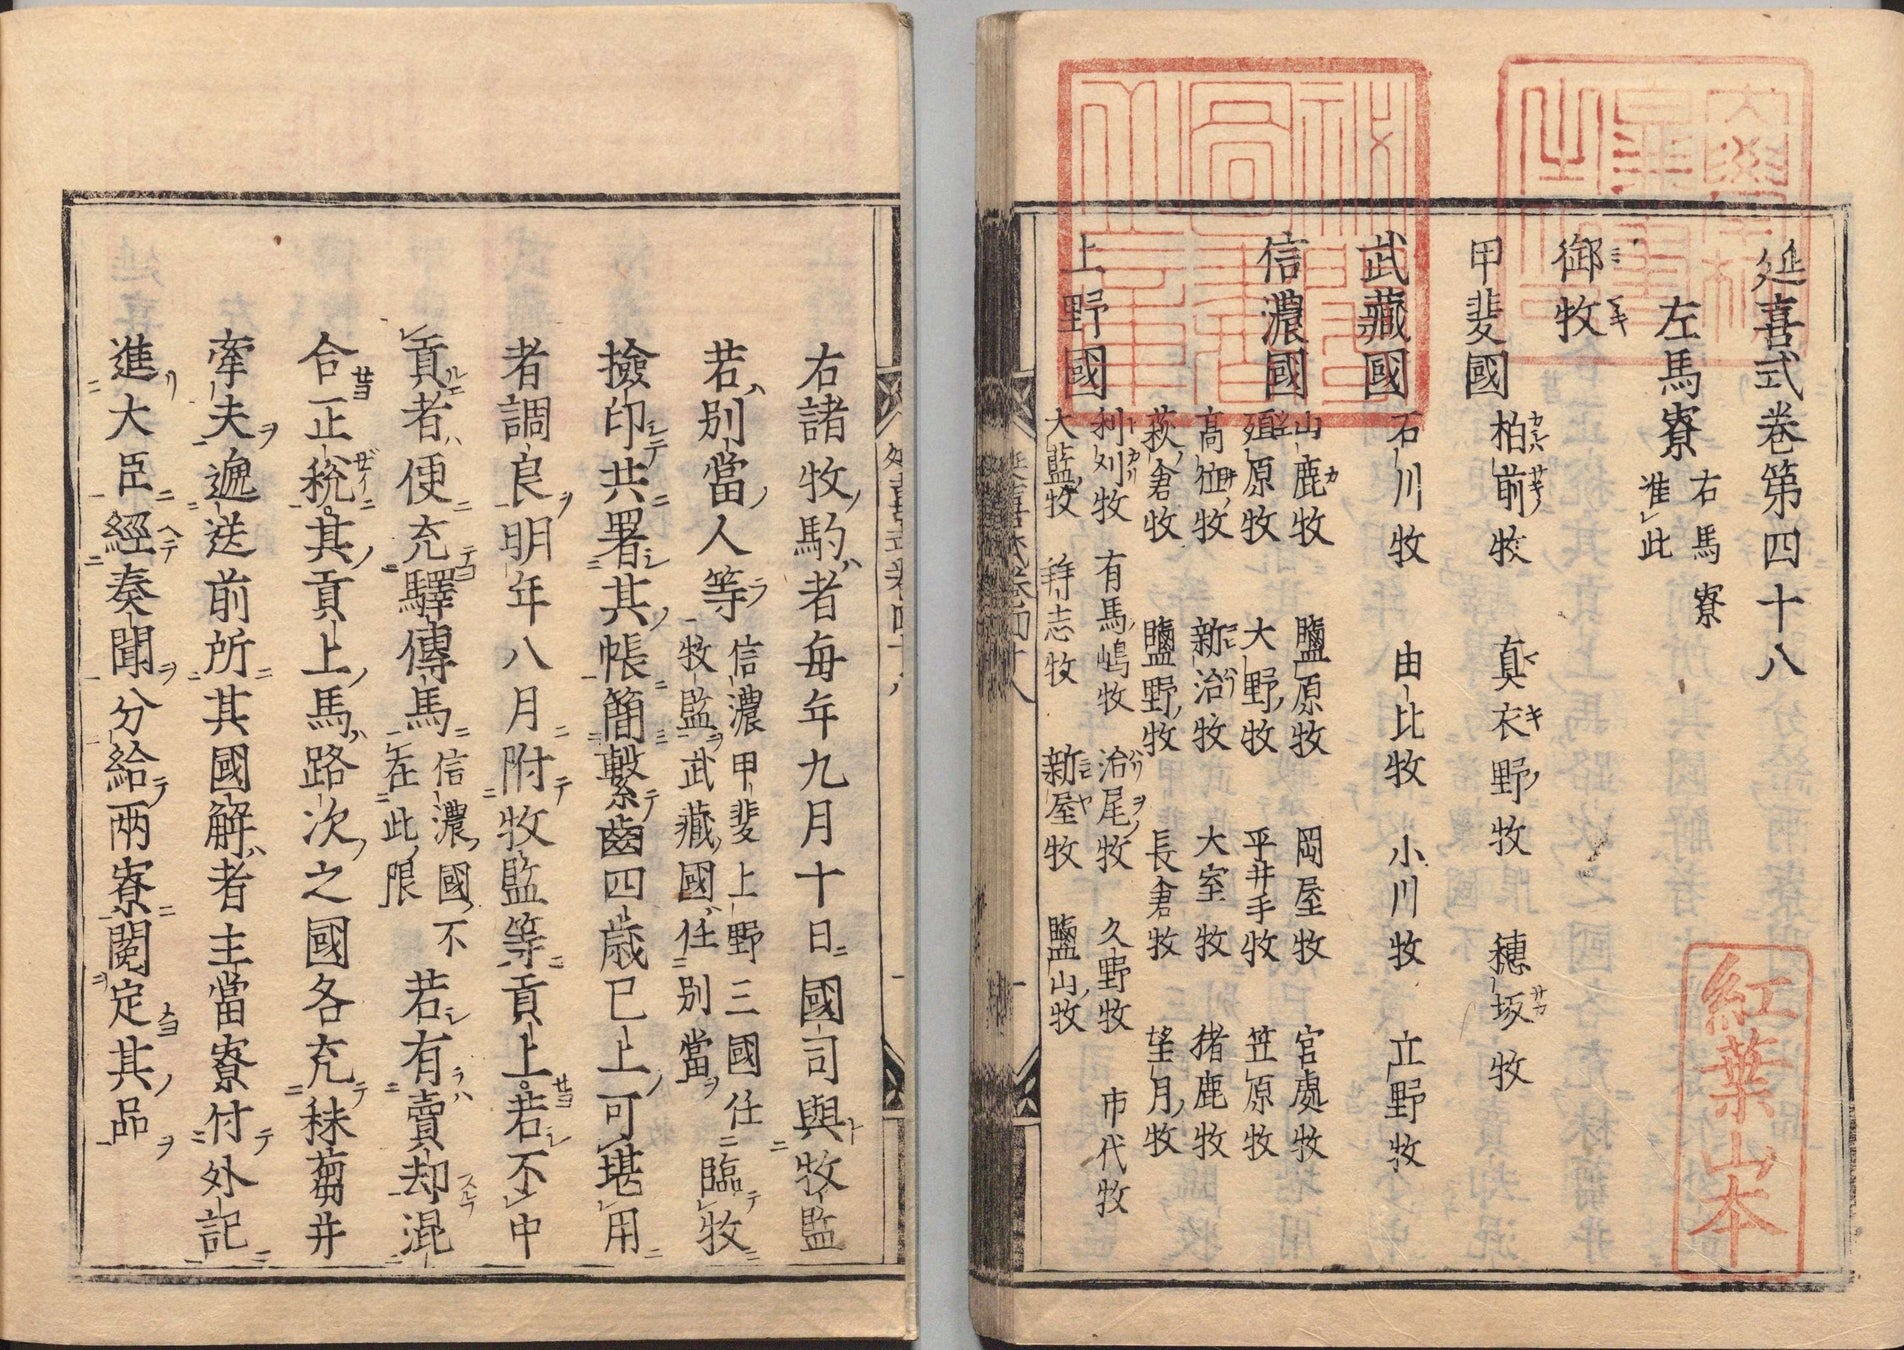 延喜式巻第四十八
左馬寮 右馬寮准此
御牧
甲斐國 柏前牧 真衣野牧 穗坂牧
武藏國 石川牧 由比牧 小川牧 立野牧
信濃國 山鹿牧 鹽原牧 岡屋牧 宮處牧
殖原牧 大野牧 平井手牧 笠原牧
髙位牧 新治牧 大室牧 猪鹿牧
萩倉牧 鹽野牧 長倉牧 望月牧
上野國 利刈牧 有馬嶋牧 治尾牧 久野牧 市代牧
大藍牧 新屋牧 鹽山牧
右諸牧駒者每年九月十日國司與牧監
若別當人等 信濃甲斐上野三國任牧監武藏國任別當 臨牧
撿印共署其帳簡繫齒四歲已上可堪用
者調良明年八月附牧監等貢上若不中
貢者便充驛傳馬 信濃國不在此限 若有賣却混
合正稅其貢上馬路次之國各充秣蒭并
牽夫遞送前所其國解者主當寮付外記
進大臣經奏聞分給兩寮閱定其品
紅葉山本